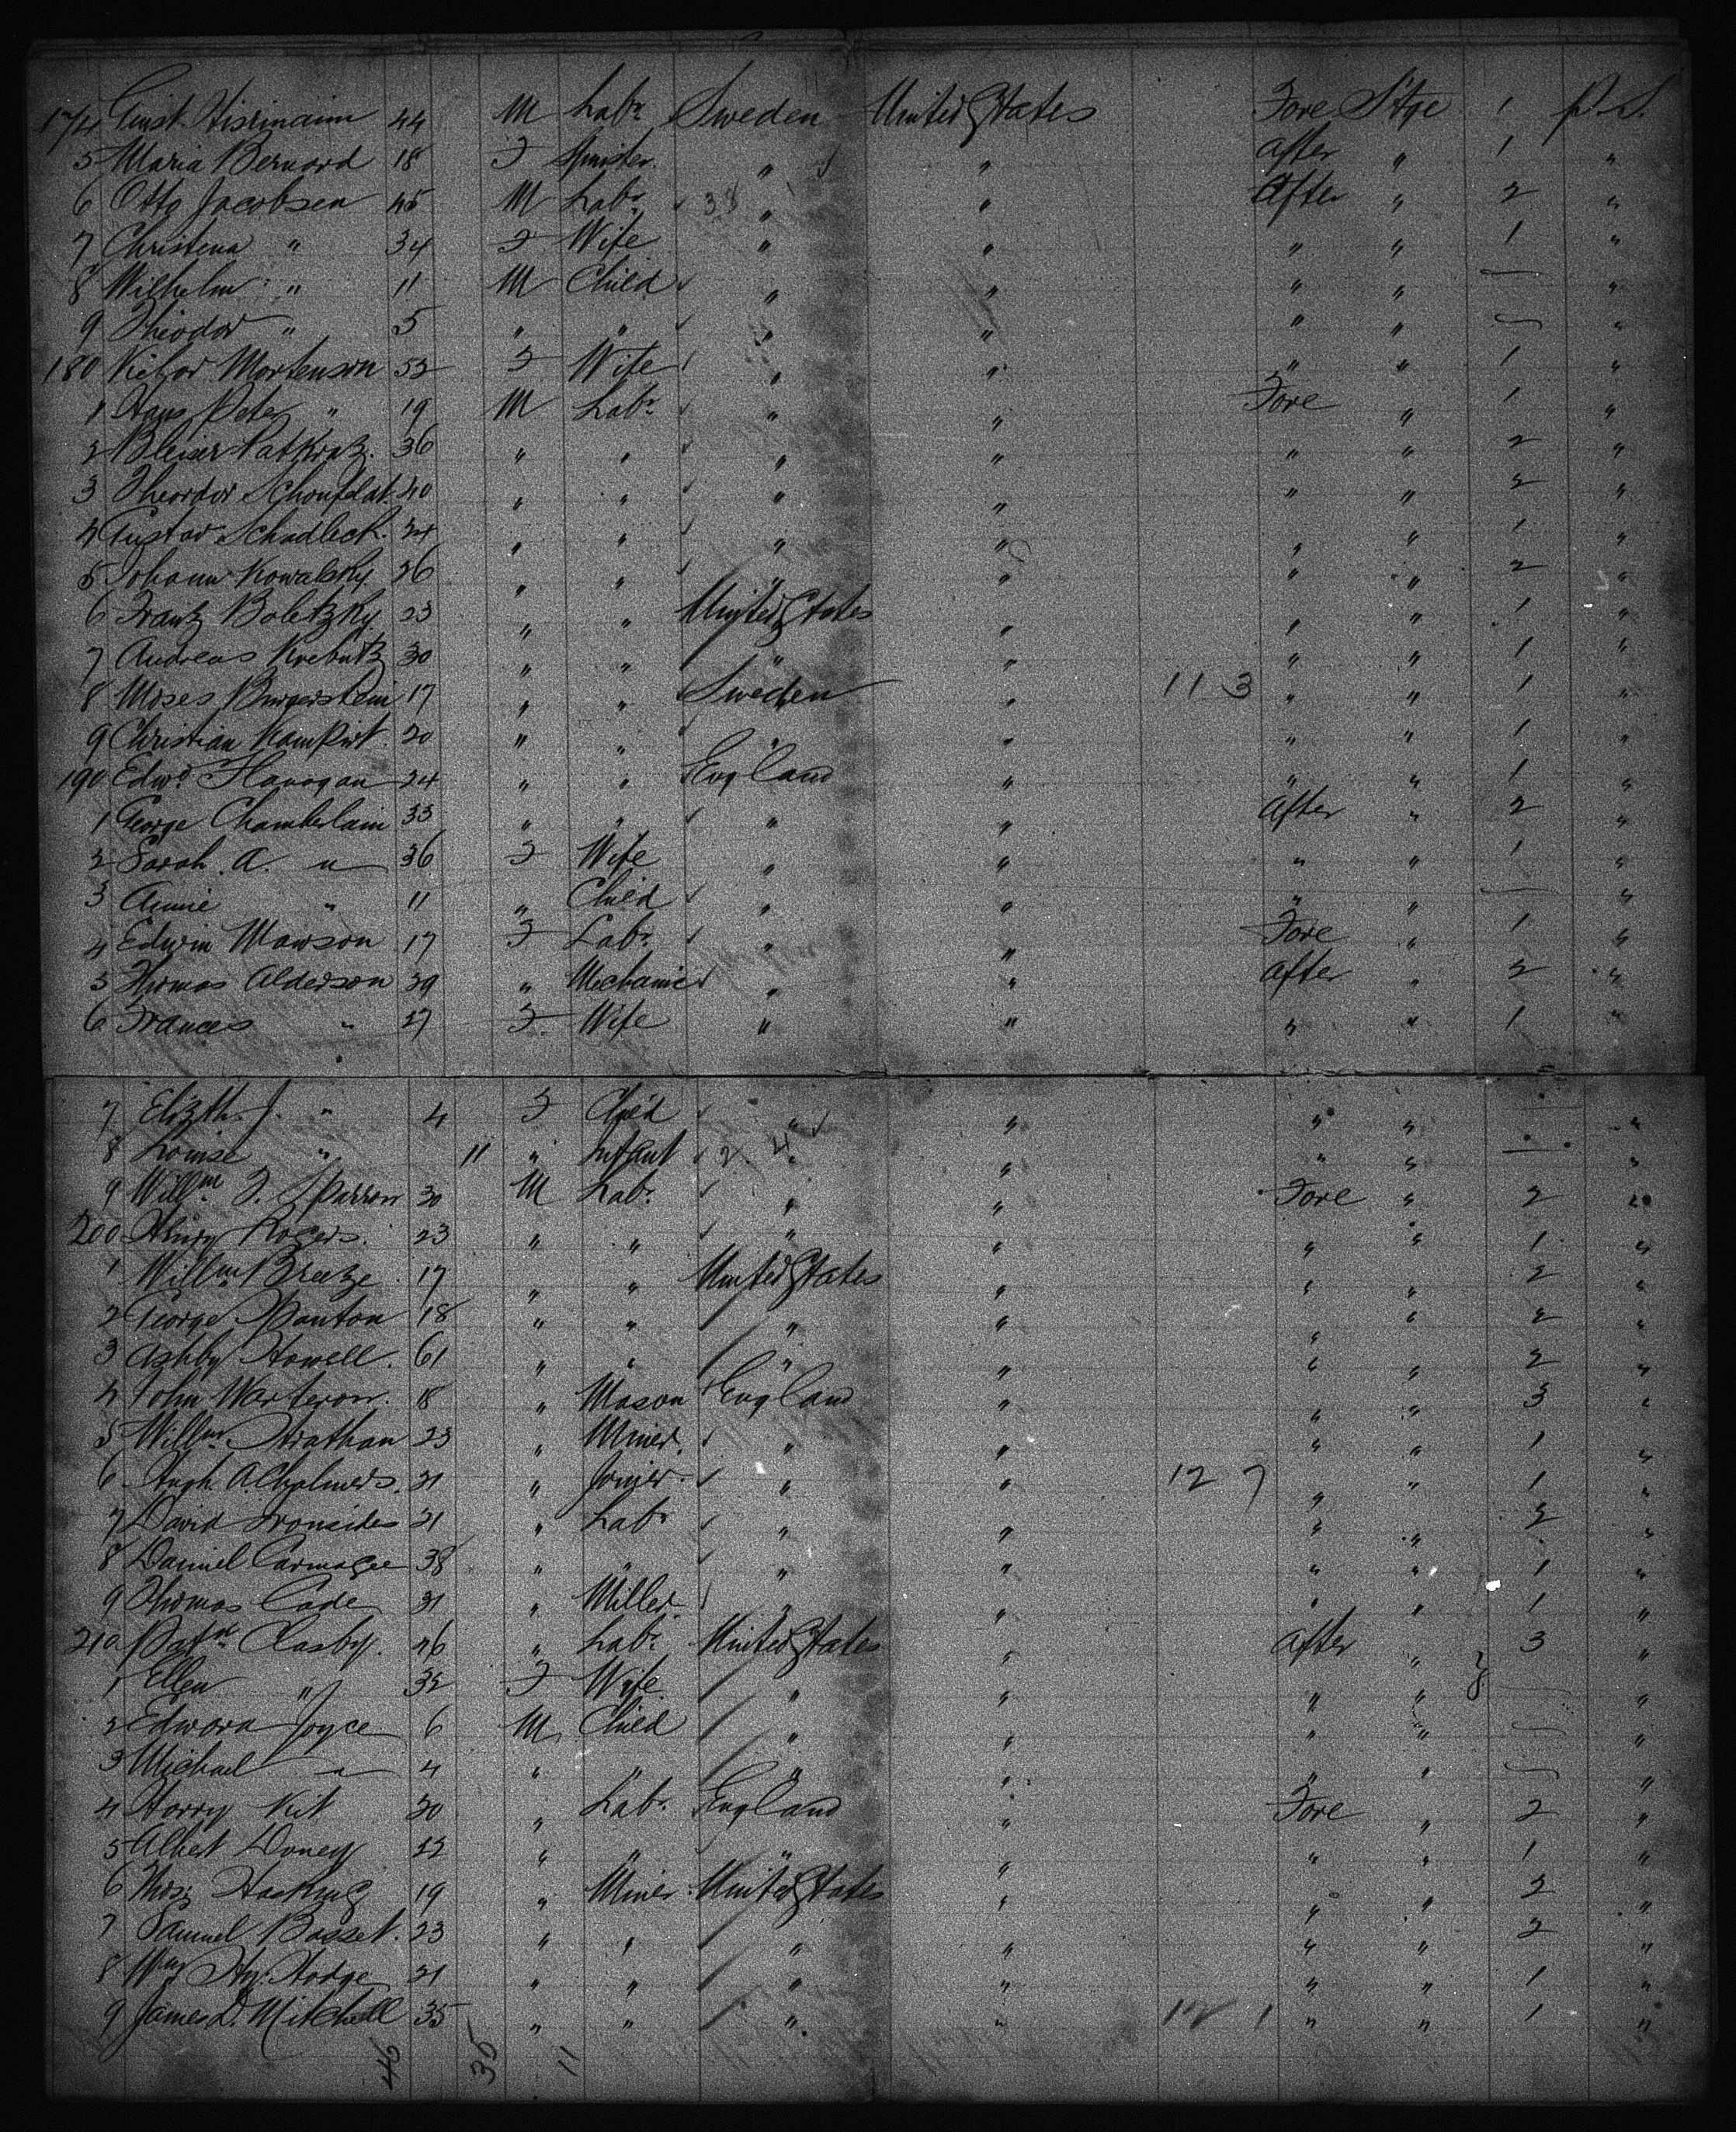 174 Gust. Hisrimaim 44 M Labr Sweden United States Fore Stge 1 P.S.
5 Maria Bernard 18 F Spinster " " After " 1 "
6 Otto Jacobsen 45 M Labr " " After " 2 "
7 Christena " 34 F Wife " " " " 1 "
8 Wilhelm " 11 M Child " " " " — "
9 Theodor " 5 " " " " " " — "
180 Mortenson 53 F Wife " " " " 1 "
1 Hans Peter " 19 M Labr " " Fore " 1 "
2 36 " " " " " " 2 "
3 Theordor 40 " " " " " " 2 "
4 Gustav Schadleck. 24 " " " " " " 1 "
5 Johann Kowalsky 26 " " " " " " 2 "
6 Frantz Boletzky 23 " " United States " " " 1 "
7 Andreas Krebutz 30 " " " " " " 1 "
8 Moses Burgerstein 17 " " Sweden " 11 3 " " 1 "
9 Christian 20 " " " " " " 1 "
190 Edwd Flanagan 24 " " England " " " 1 "
1 George Chamberlain 33 " " " " After " 2 "
2 Sarah. A. " 36 F Wife " " " " 1 "
3 Annie " 11 " Child " " " " — "
4 Edwin Mawson 17 F Labr " " Fore " 1 "
5 Thomas Alderson 39 " Mechanic " " After " 2 "
6 Frances " 27 F Wife " " " " 1 "
7 Elizth. J. " 4 F Child " " " " — "
8 Louise " 11 " Infant " " " " — "
9 Willm F. Sparrow 30 M Labr " " Fore " 2 "
200 Henry Rogers. 23 " " " " " " 1 "
1 Willm Breeze 17 " " United States " " " 2 "
2 George Panton 18 " " " " " " 2 "
3 Ashby Howell. 61 " " " " " " 2 "
4 John 18 " Mason England " " " 3 "
5 Willm Strathan 23 " Miner. " " " " 1 "
6 Hugh. A. Chalmers. 21 " Joiner. " " 12 7 " " 1 "
7 David Ironsides 21 " Labr " " " " 2 "
8 Daniel 38 " " " " " " 1 "
9 Thomas Cade 31 " Miller " " " " 1 "
210 Patk Clasby. 26 " Labr United States " After " 3 "
1 Ellen " 32 F Wife " " " " — "
2 Edward Joyce 6 M Child " " " " — "
3 Michael " 4 " " " " " " — "
4 Harry Kit 30 " Labr England " Fore " 2 "
5 Albert Doney 22 " " " " " " 1 "
6 Thos. Hosking 19 " Miner United States " " " 2 "
7 Samuel Basset. 23 " " " " " " 2 "
8 Wm Hy. Hodge 21 " " " " " " 1 "
9 James D. Mitchell 35 " " " " 12 1 " " 1 "
46 35 11